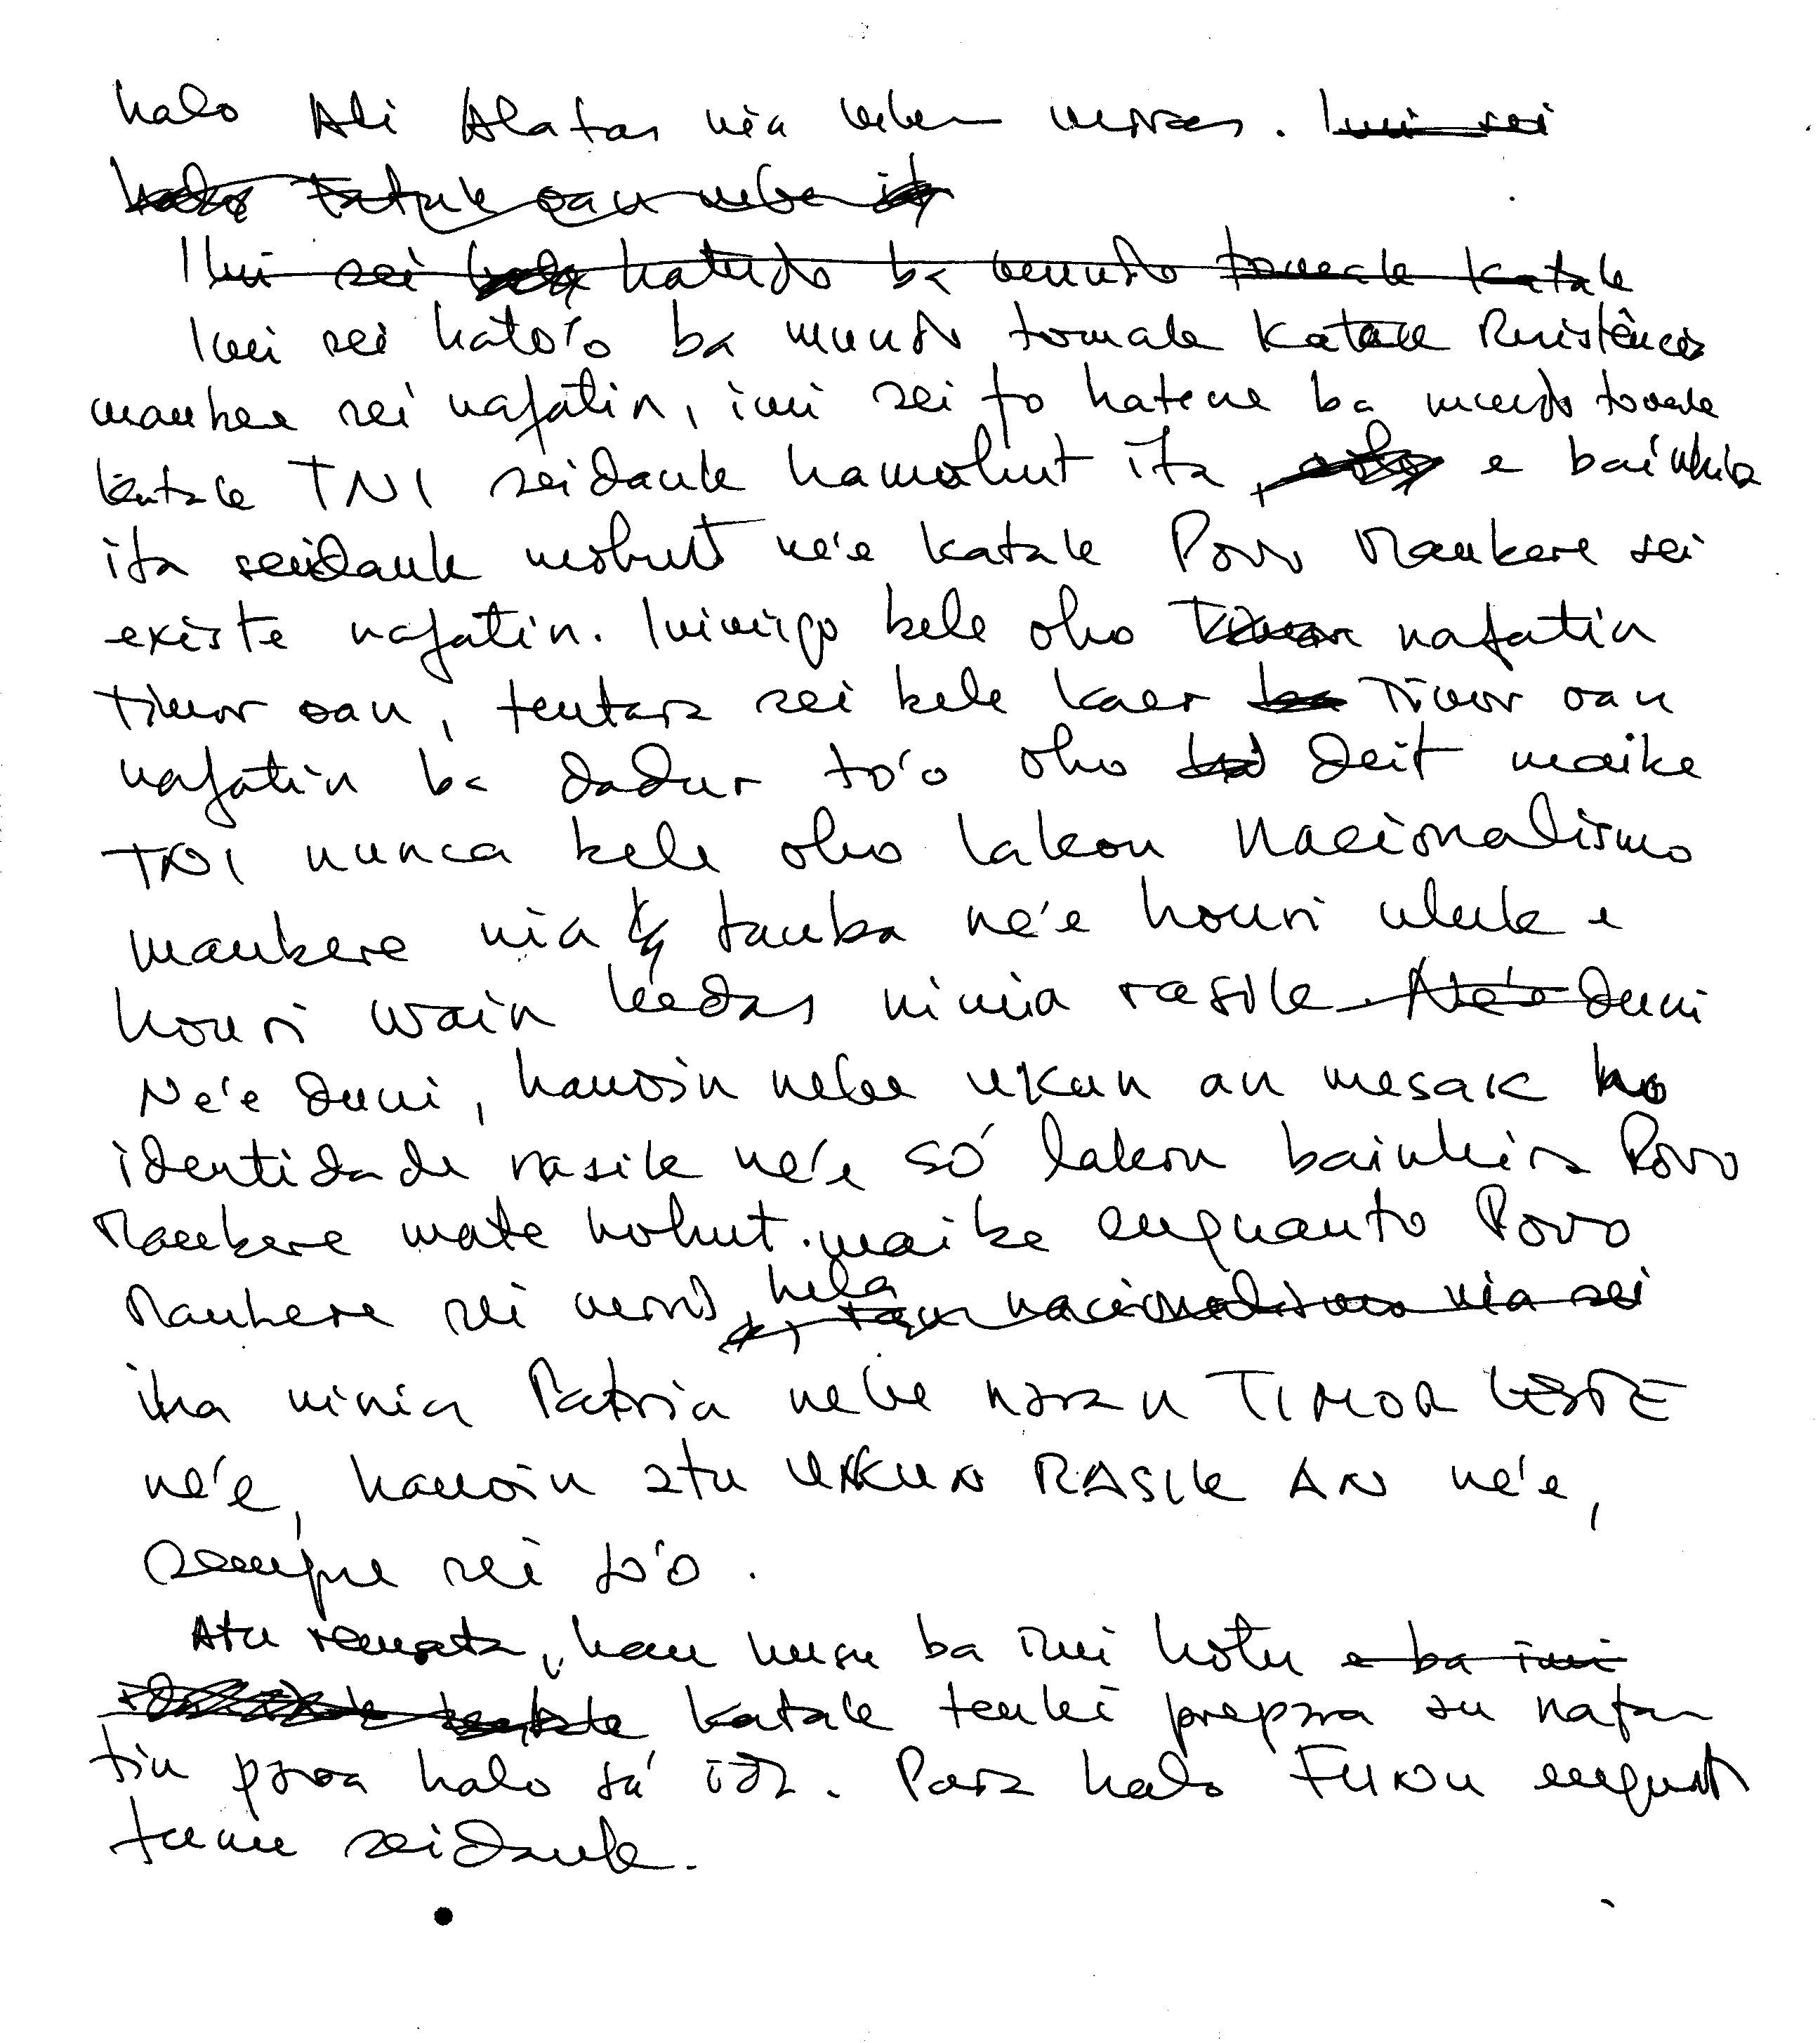 halo Ali Alatas nia ulun moras. Imi sei
halo fatuk oan nebe ita
Imi sei halo hatudo ba mundo tomak katak
Imi sei hato'o ba mundo tomak katak Resistência
maubere sei nafatin, imi sei fo hatene ba mundo tomak
katak TNI seidauk hamohut ita, e bainhira
ita seidauk mohut ne'e katak Povo Maubere sei
existe nafatin. Inimigo bele oho Timor nafatin
Timor oan, tentara sei bele kaer ba Timor oan
nafatin ba dadur to'o oho deit maibe
TNI nunca bele oho lakon Nacionalismo
maubere nia tamba ne'e houri uluk e
houri wain kedas ninia rasik. Ne'e duni
Ne'e duni, hanoin nebe ukun an mesak ho
identidade rasik ne'e só lakon bainhira Povo
Maubere mate hohut. maibe enquanto Povo
Maubere sei moris, hela nacionalismo nia sei
iha ninia Patria nebe naran TIMOR LESTE
ne'e, hanoin atu UKUN RASIK AN ne'e,
sempre sei to'o.
Atu remata, hau husu ba imi hotu e ba imi
katak tenki prepara an nafa-
tin para halo sá ida. Para halo FUNU enquanto
funu seidauk.